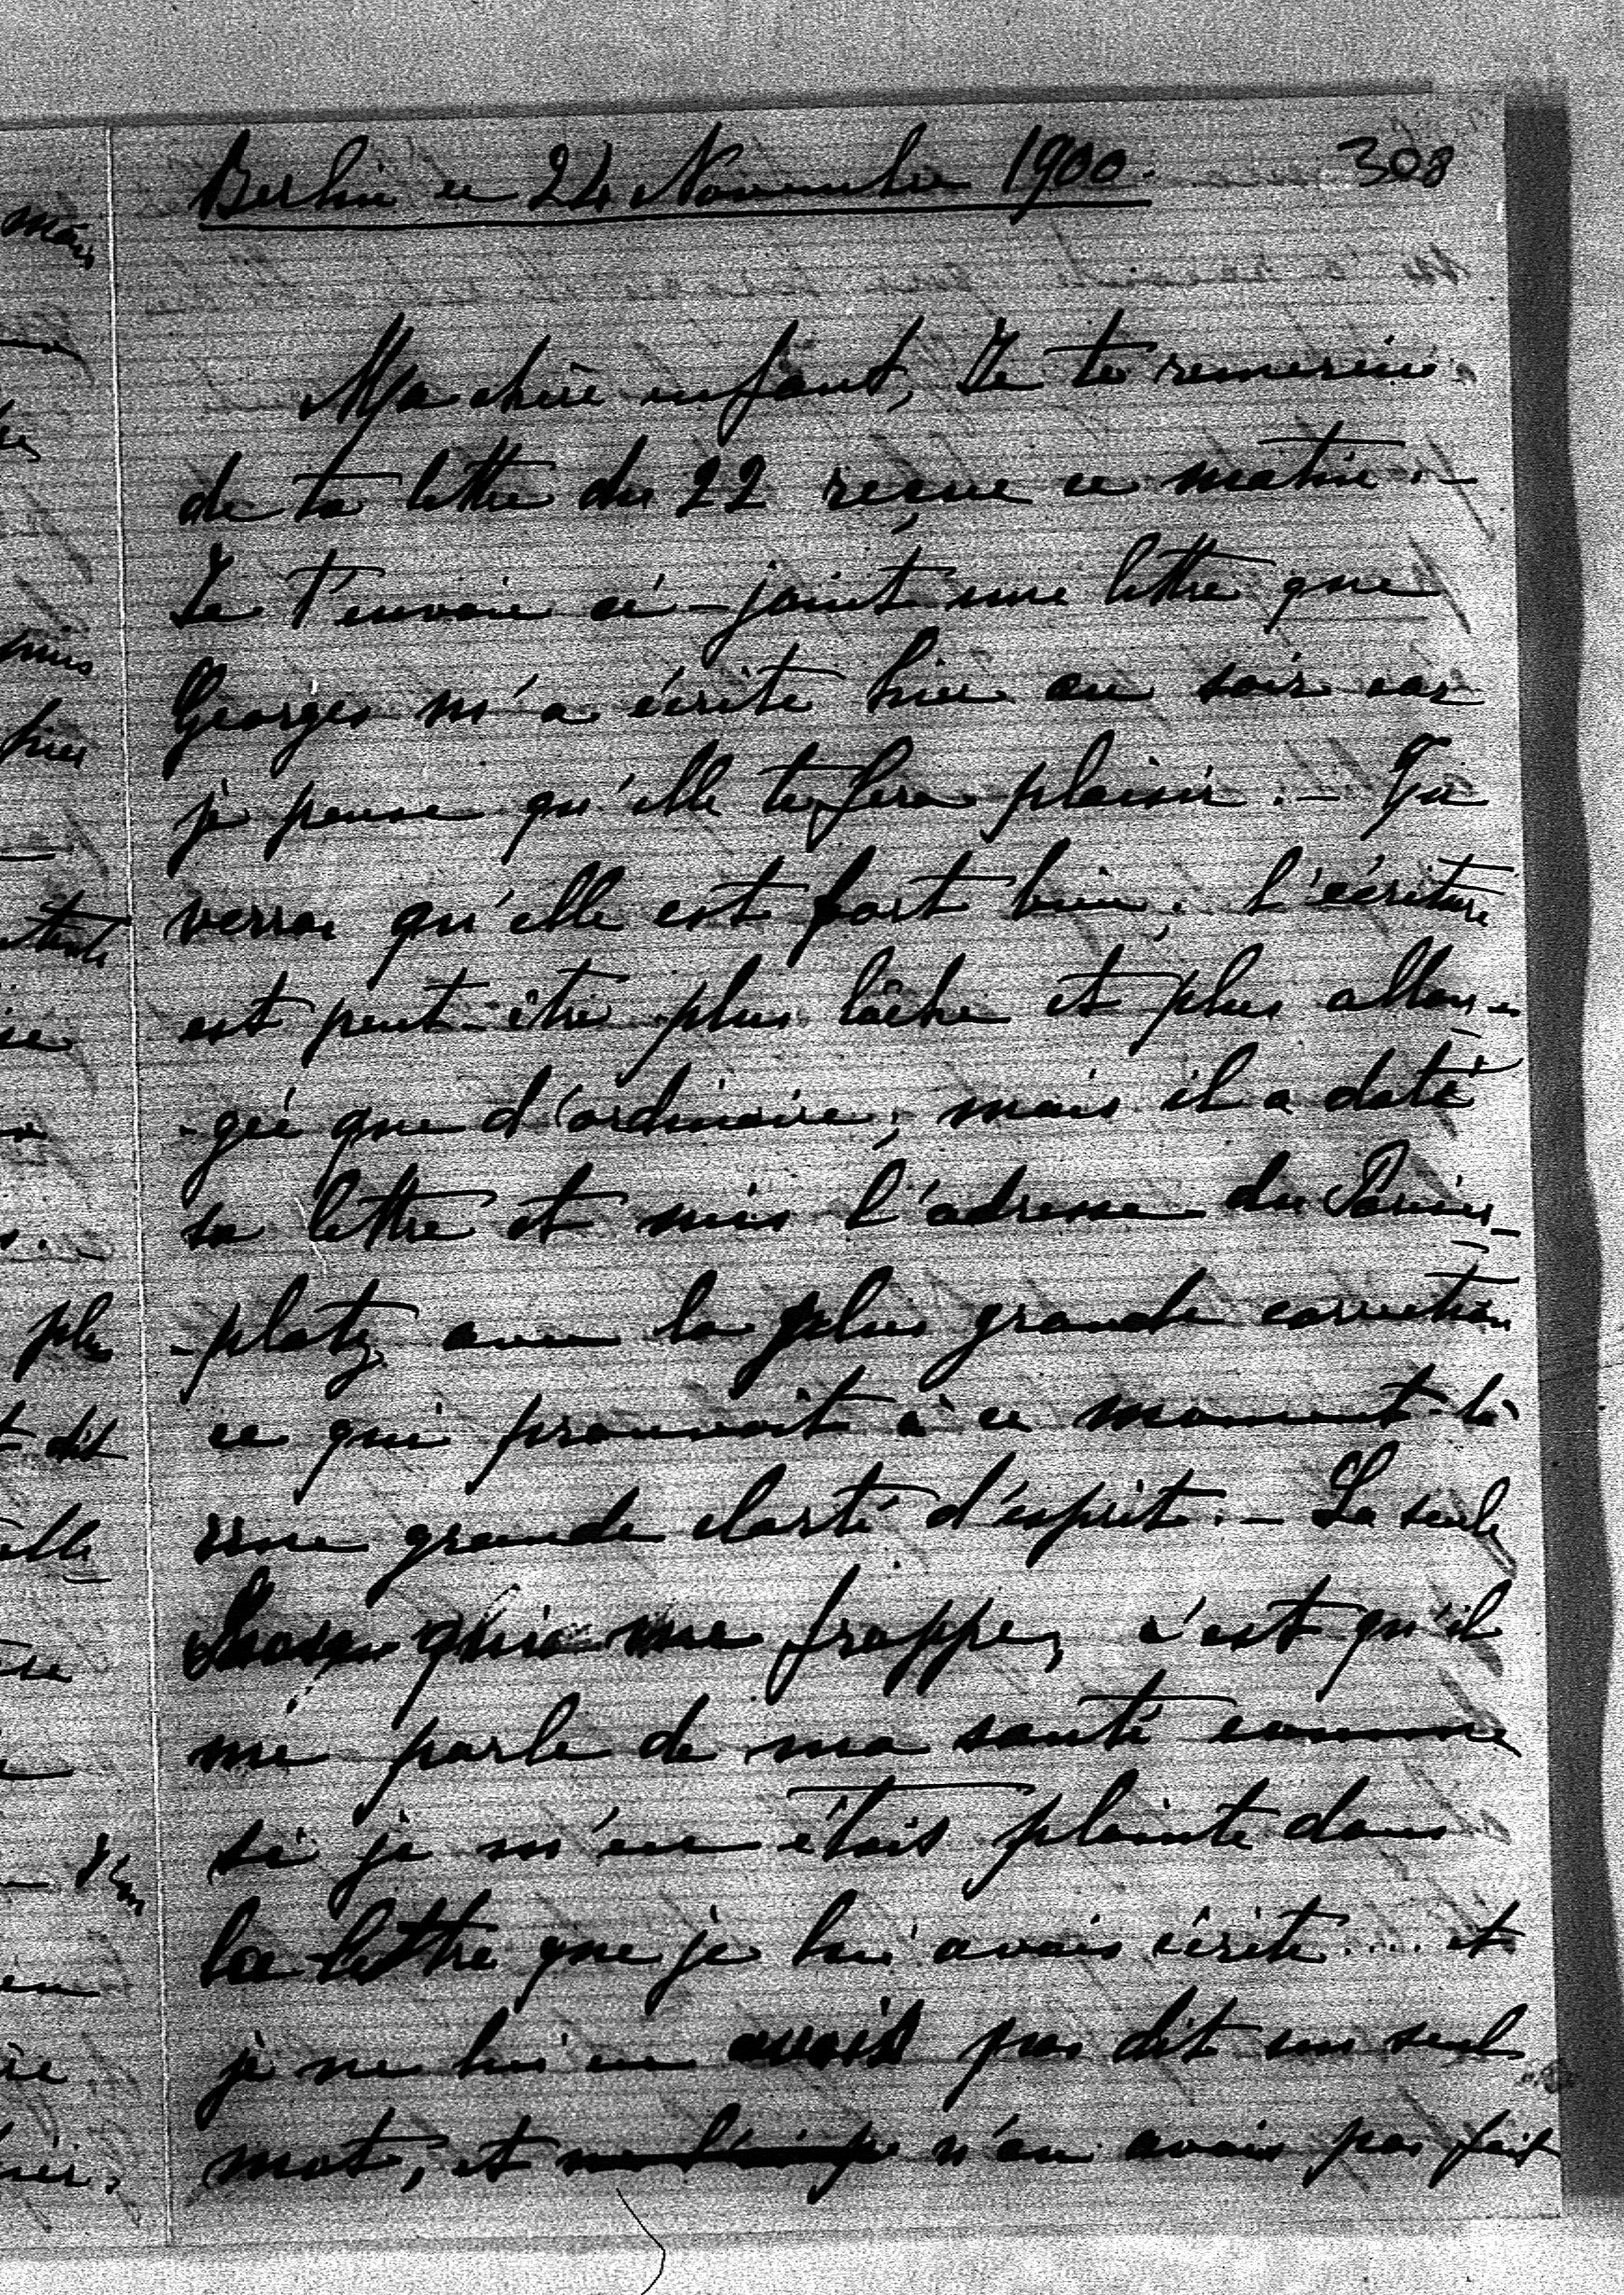 Berlin ce 24 Novembre 1900. 308
Ma chère enfant, Je te remercie
de ta lettre du 22 reçue ce matin. –
Je t'envoie ci-joint une lettre que
Georges m'a écrite hier au soir car
je pense qu'elle te fera plaisir. – Tu
verras qu'elle est fort bien; l'écriture
est peut-être plus lâche et plus allon-
-gée que d'ordinaire; mais il a daté
sa lettre et mis l'adresse du Pariser-
-platz avec la plus grande correction
ce qui prouvait à ce moment-là
une grande clarté d'esprit. – La seule
chose qui me frappe, c'est qu'il
me parle de ma santé comme
si je m'en étais plainte dans
la lettre que je lui avais écrite.... et
je ne lui en avais pas dit un seul
mot, et n'en avais pas fait
mais
hier
plus
dit
elle